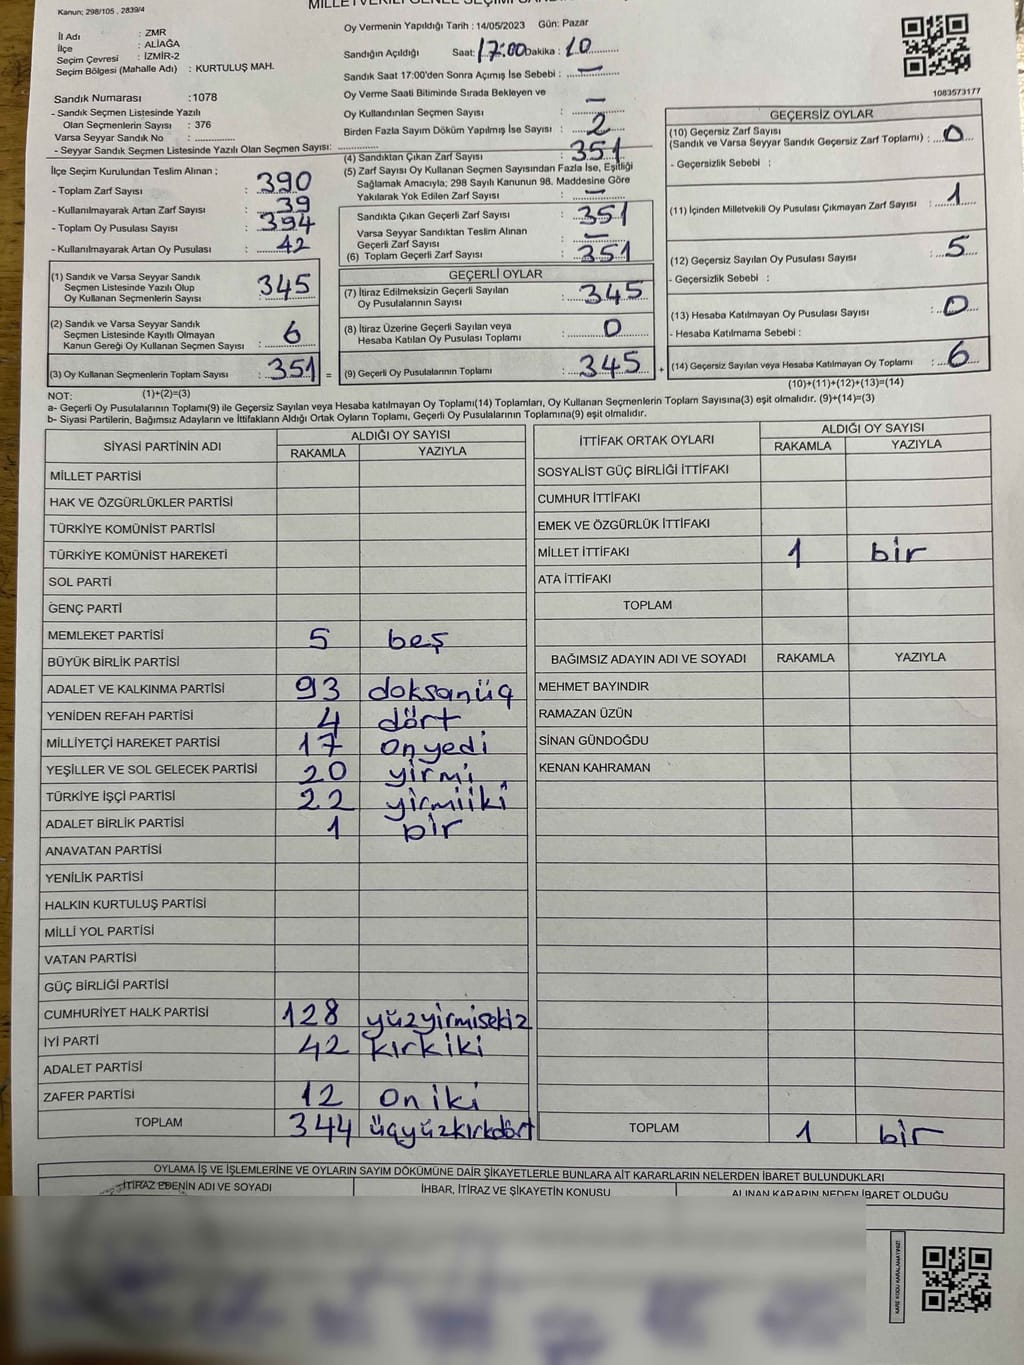 Kanun; 298/105 . 2839/4
İl Adı : ZMR
İlçe : ALİAĞA
Seçim Çevresi : İZMİR-2
Seçim Bölgesi (Mahalle Adı) : KURTULUŞ MAH.
Sandık Numarası :1078
- Sandık Seçmen Listesinde Yazılı
Olan Seçmenlerin Sayısı : 376
Varsa Seyyar Sandık No : ..............
- Seyyar Sandık Seçmen Listesinde Yazılı Olan Seçmen Sayısı: ..............
Oy Vermenin Yapıldığı Tarih : 14/05/2023 Gün: Pazar
Sandığın Açıldığı Saat: 17:00 Dakika : 10
Sandık Saat 17:00'den Sonra Açımış İse Sebebi : —
Oy Verme Saati Bitiminde Sırada Bekleyen ve
Oy Kullandırılan Seçmen Sayısı : —
Birden Fazla Sayım Döküm Yapılmış İse Sayısı : 2
1083573177
İlçe Seçim Kurulundan Teslim Alınan ;
- Toplam Zarf Sayısı : 390
- Kullanılmayarak Artan Zarf Sayısı : 39
- Toplam Oy Pusulası Sayısı : 394
- Kullanılmayarak Artan Oy Pusulası : 42
(1) Sandık ve Varsa Seyyar Sandık
Seçmen Listesinde Yazılı Olup
Oy Kullanan Seçmenlerin Sayısı : 345
(2) Sandık ve Varsa Seyyar Sandık
Seçmen Listesinde Kayıtlı Olmayan
Kanun Gereği Oy Kullanan Seçmen Sayısı : 6
(3) Oy Kullanan Seçmenlerin Toplam Sayısı : 351 =
(1)+(2)=(3)
(4) Sandıktan Çıkan Zarf Sayısı : 351
(5) Zarf Sayısı Oy Kullanan Seçmen Sayısından Fazla İse, Eşitliği
Sağlamak Amacıyla; 298 Sayılı Kanunun 98. Maddesine Göre
Yakılarak Yok Edilen Zarf Sayısı : —
Sandıkta Çıkan Geçerli Zarf Sayısı : 351
Varsa Seyyar Sandıktan Teslim Alınan
Geçerli Zarf Sayısı : —
(6) Toplam Geçerli Zarf Sayısı : 351
GEÇERLİ OYLAR
(7) İtiraz Edilmeksizin Geçerli Sayılan
Oy Pusulalarının Sayısı : 345
(8) İtiraz Üzerine Geçerli Sayılan veya
Hesaba Katılan Oy Pusulası Toplamı : 0
(9) Geçerli Oy Pusulalarının Toplamı : 345 +
GEÇERSİZ OYLAR
(10) Geçersiz Zarf Sayısı
(Sandık ve Varsa Seyyar Sandık Geçersiz Zarf Toplamı) : 0
- Geçersizlik Sebebi :
(11) İçinden Milletvekili Oy Pusulası Çıkmayan Zarf Sayısı : 1
(12) Geçersiz Sayılan Oy Pusulası Sayısı : 5
- Geçersizlik Sebebi :
(13) Hesaba Katılmayan Oy Pusulası Sayısı : 0
- Hesaba Katılmama Sebebi :
(14) Geçersiz Sayılan veya Hesaba Katılmayan Oy Toplamı : 6
(10)+(11)+(12)+(13)=(14)
NOT:
a- Geçerli Oy Pusulalarının Toplamı(9) ile Geçersiz Sayılan veya Hesaba Katılmayan Oy Toplamı(14) Toplamları, Oy Kullanan Seçmenlerin Toplam Sayısına(3) eşit olmalıdır. (9)+(14)=(3)
b- Siyasi Partilerin, Bağımsız Adayların ve İttifakların Aldığı Ortak Oyların Toplamı, Geçerli Oy Pusulalarının Toplamına(9) eşit olmalıdır.
SİYASİ PARTİNİN ADI
ALDIĞI OY SAYISI
RAKAMLA YAZIYLA
MİLLET PARTİSİ
HAK VE ÖZGÜRLÜKLER PARTİSİ
TÜRKİYE KOMÜNİST PARTİSİ
TÜRKİYE KOMÜNİST HAREKETİ
SOL PARTİ
GENÇ PARTİ
MEMLEKET PARTİSİ 5 beş
BÜYÜK BİRLİK PARTİSİ
ADALET VE KALKINMA PARTİSİ 93 doksanüç
YENİDEN REFAH PARTİSİ 4 dört
MİLLİYETÇİ HAREKET PARTİSİ 17 onyedi
YEŞİLLER VE SOL GELECEK PARTİSİ 20 yirmi
TÜRKİYE İŞÇİ PARTİSİ 22 yirmiiki
ADALET BİRLİK PARTİSİ 1 bir
ANAVATAN PARTİSİ
YENİLİK PARTİSİ
HALKIN KURTULUŞ PARTİSİ
MİLLİ YOL PARTİSİ
VATAN PARTİSİ
GÜÇ BİRLİĞİ PARTİSİ
CUMHURİYET HALK PARTİSİ 128 yüzyirmisekiz
İYİ PARTİ 42 kırkiki
ADALET PARTİSİ
ZAFER PARTİSİ 12 oniki
TOPLAM 344 üçyüzkırkdört
İTTİFAK ORTAK OYLARI
ALDIĞI OY SAYISI
RAKAMLA YAZIYLA
SOSYALİST GÜÇ BİRLİĞİ İTTİFAKI
CUMHUR İTTİFAKI
EMEK VE ÖZGÜRLÜK İTTİFAKI
MİLLET İTTİFAKI 1 bir
ATA İTTİFAKI
TOPLAM
BAĞIMSIZ ADAYIN ADI VE SOYADI RAKAMLA YAZIYLA
MEHMET BAYINDIR
RAMAZAN ÜZÜN
SİNAN GÜNDOĞDU
KENAN KAHRAMAN
TOPLAM 1 bir
OYLAMA İŞ VE İŞLEMLERİNE VE OYLARIN SAYIM DÖKÜMÜNE DAİR ŞİKAYETLERLE BUNLARA AİT KARARLARIN NELERDEN İBARET BULUNDUKLARI
İTİRAZ EDENİN ADI VE SOYADI
İHBAR, İTİRAZ VE ŞİKAYETİN KONUSU
ALINAN KARARIN NEDEN İBARET OLDUĞU
KARE KODU KARALAMAYINIZ!